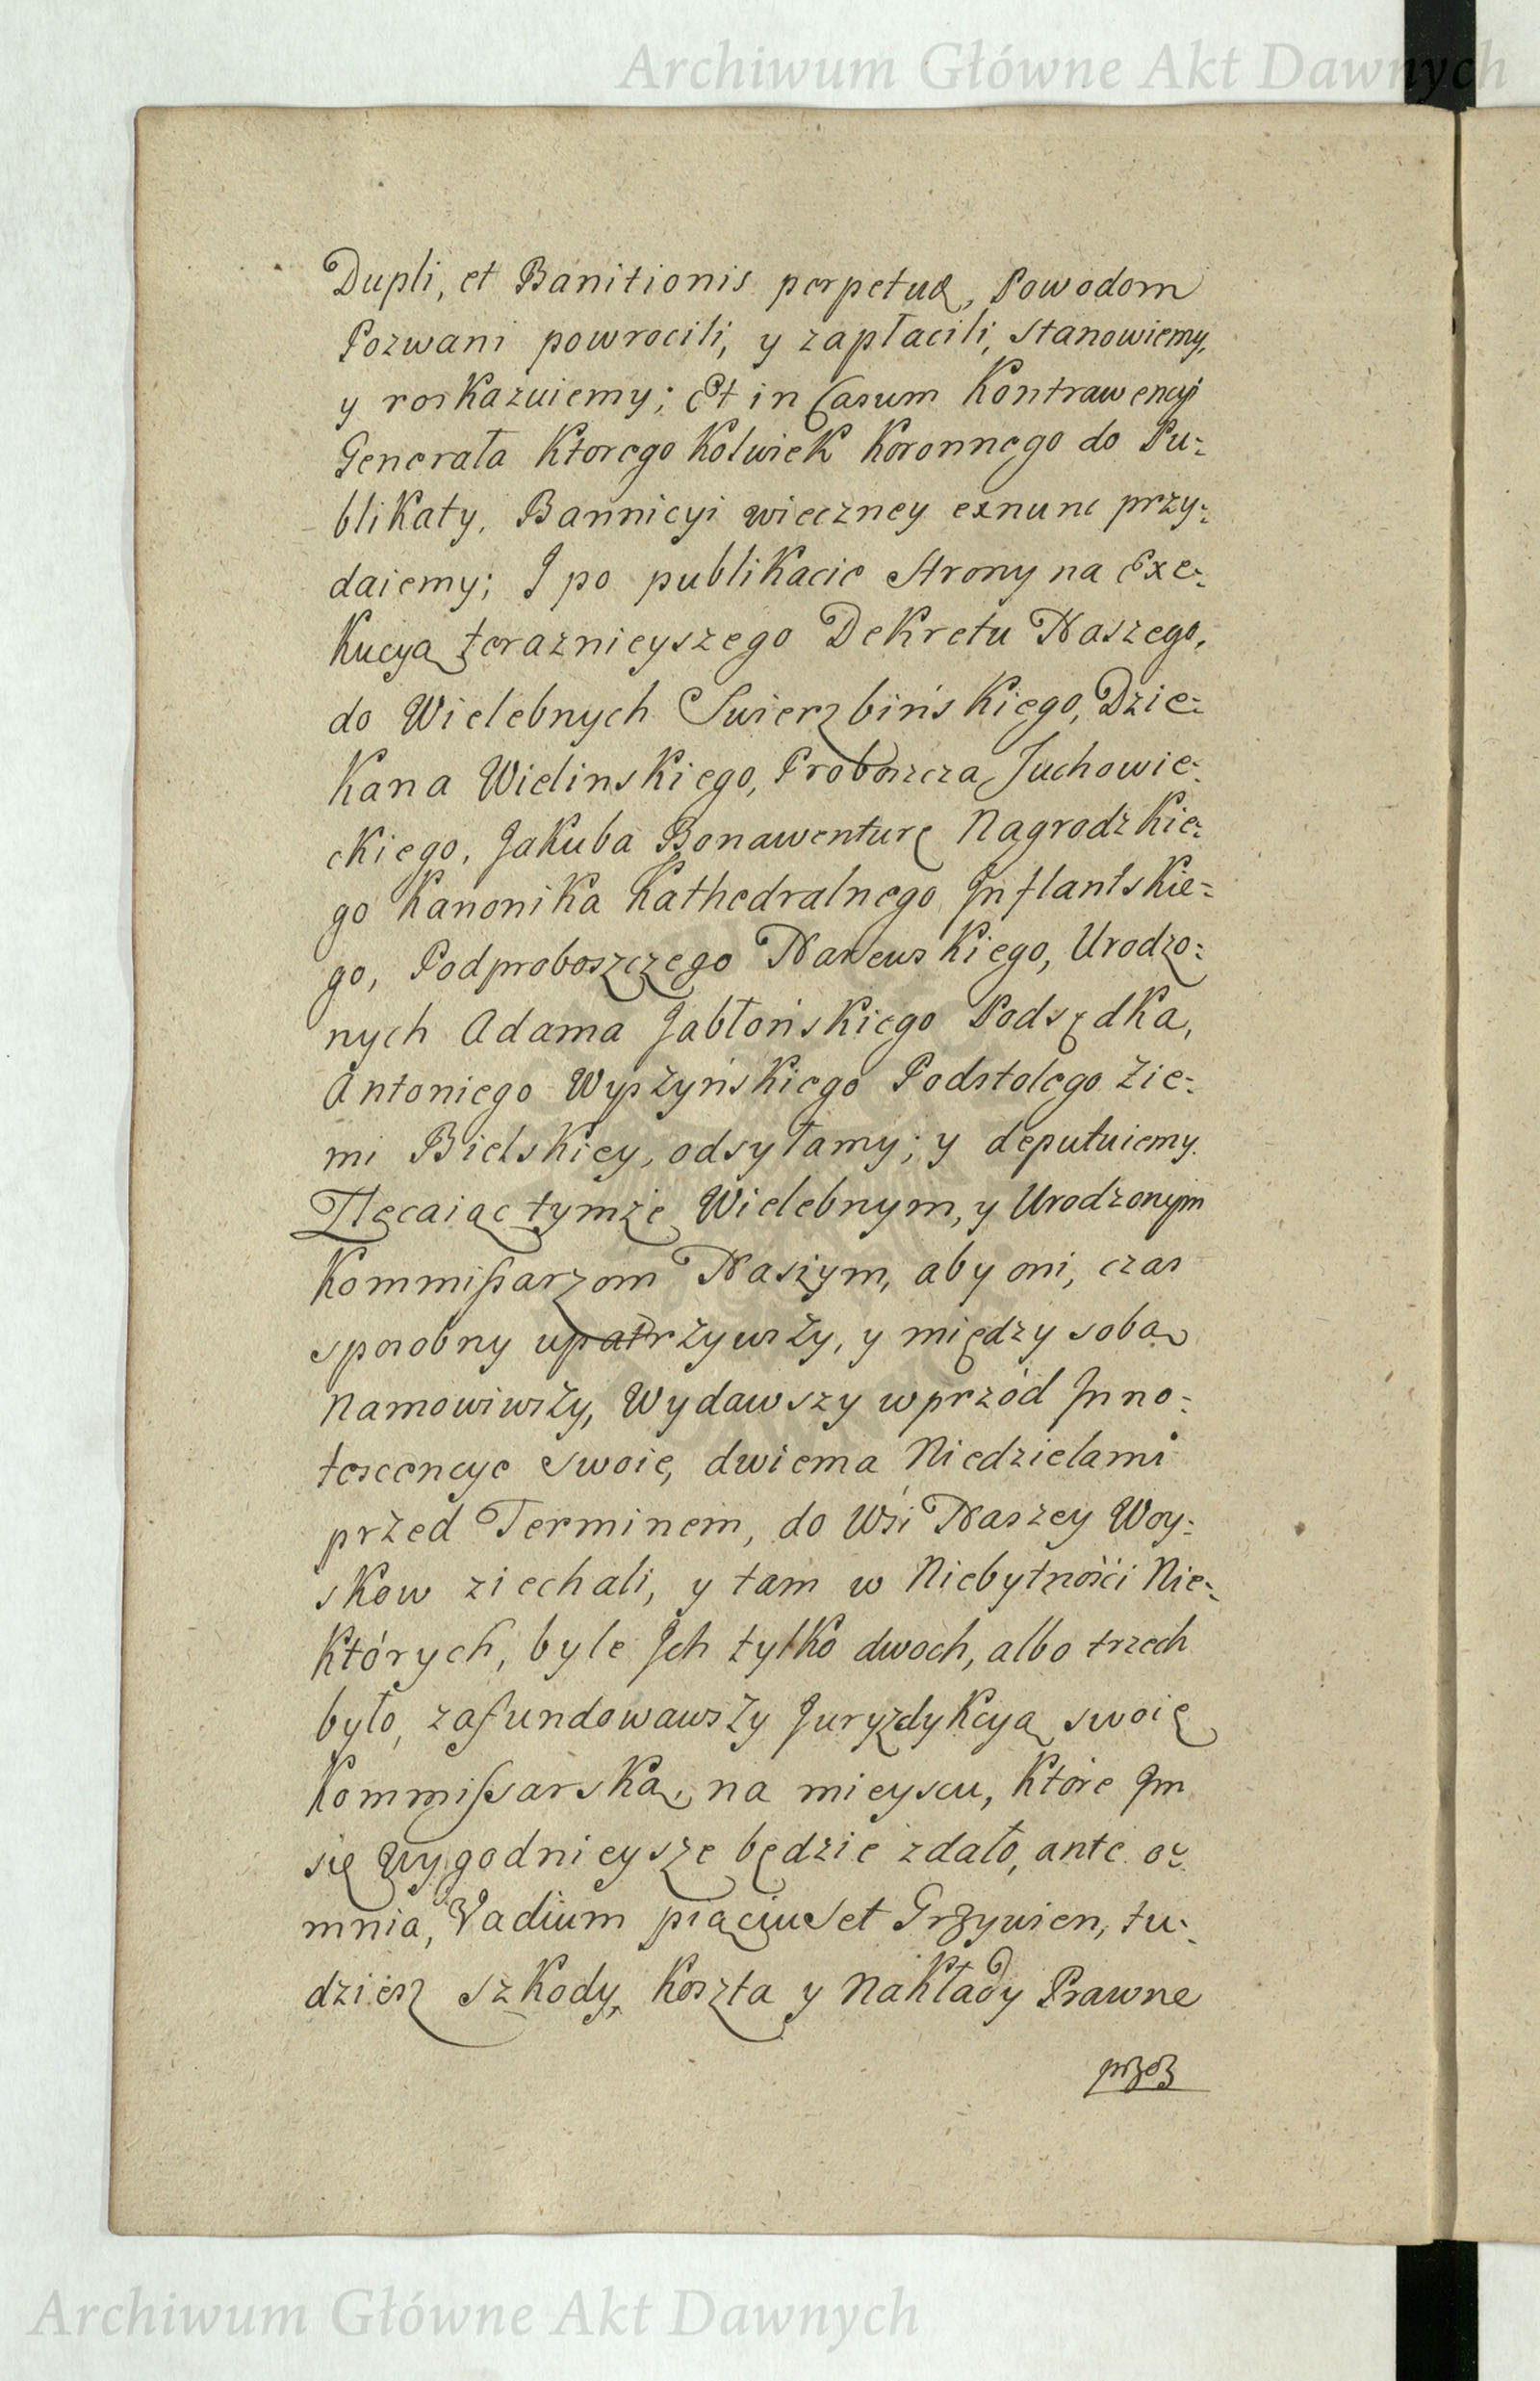 Archiwum Główne Akt Dawnych
Dupli, et Banitionis perpetuæ, Powodom
Pozwani powrocili, y zapłacili, Stanowiemy,
y roskazuiemy; Et in Casum Kontrawencyi
Generała Ktorego Kolwiek Koronnego do Pu-
blikaty, Bannicyi wieczney exnunc przy-
daiemy; I po publikacie Strony na Exe-
Kucyą teraznieyszego Dekretu Naszego,
do Wielebnych Swierzbińskiego, Dzie-
Kana Wielinskiego, Proboszcza Juchowie-
ckiego, Jakuba Bonawenturę Nagrodzkie-
go Kanonika Kathedralnego Inflantskie-
go, Podproboszczego Narewskiego, Urodzo-
nych Adama Jabłońskiego Podsędka,
Antoniego Wyszyńskiego Podstolego Zie-
mi Bielskiey, odsyłamy; y deputuiemy.
Zlecaiąc tymże Wielebnym, y Urodzonym
Kommissarzom Naszym, aby oni, czas
sposobny upatrżywszy, y między sobą
Namowiwszy, Wydawszy wprzód Inno-
tescencye swoie, dwiema Niedzielami
przed Terminem, do Wsi Naszey Woy-
skow ziechali, y tam w Niebytności Nie-
których, byle Ich tylko dwoch, albo trzech
było, zafundowawszy Juryzdykcyą swoię
Kommissarską, na mieyscu, które Im
się wygodnieysze będzie zdało, ante o-
mnia, Vadium pięciuset Grzywien, tu-
dziesz szkody, Koszta y Nakłady Prawne
przez
Archiwum Główne Akt Dawnych